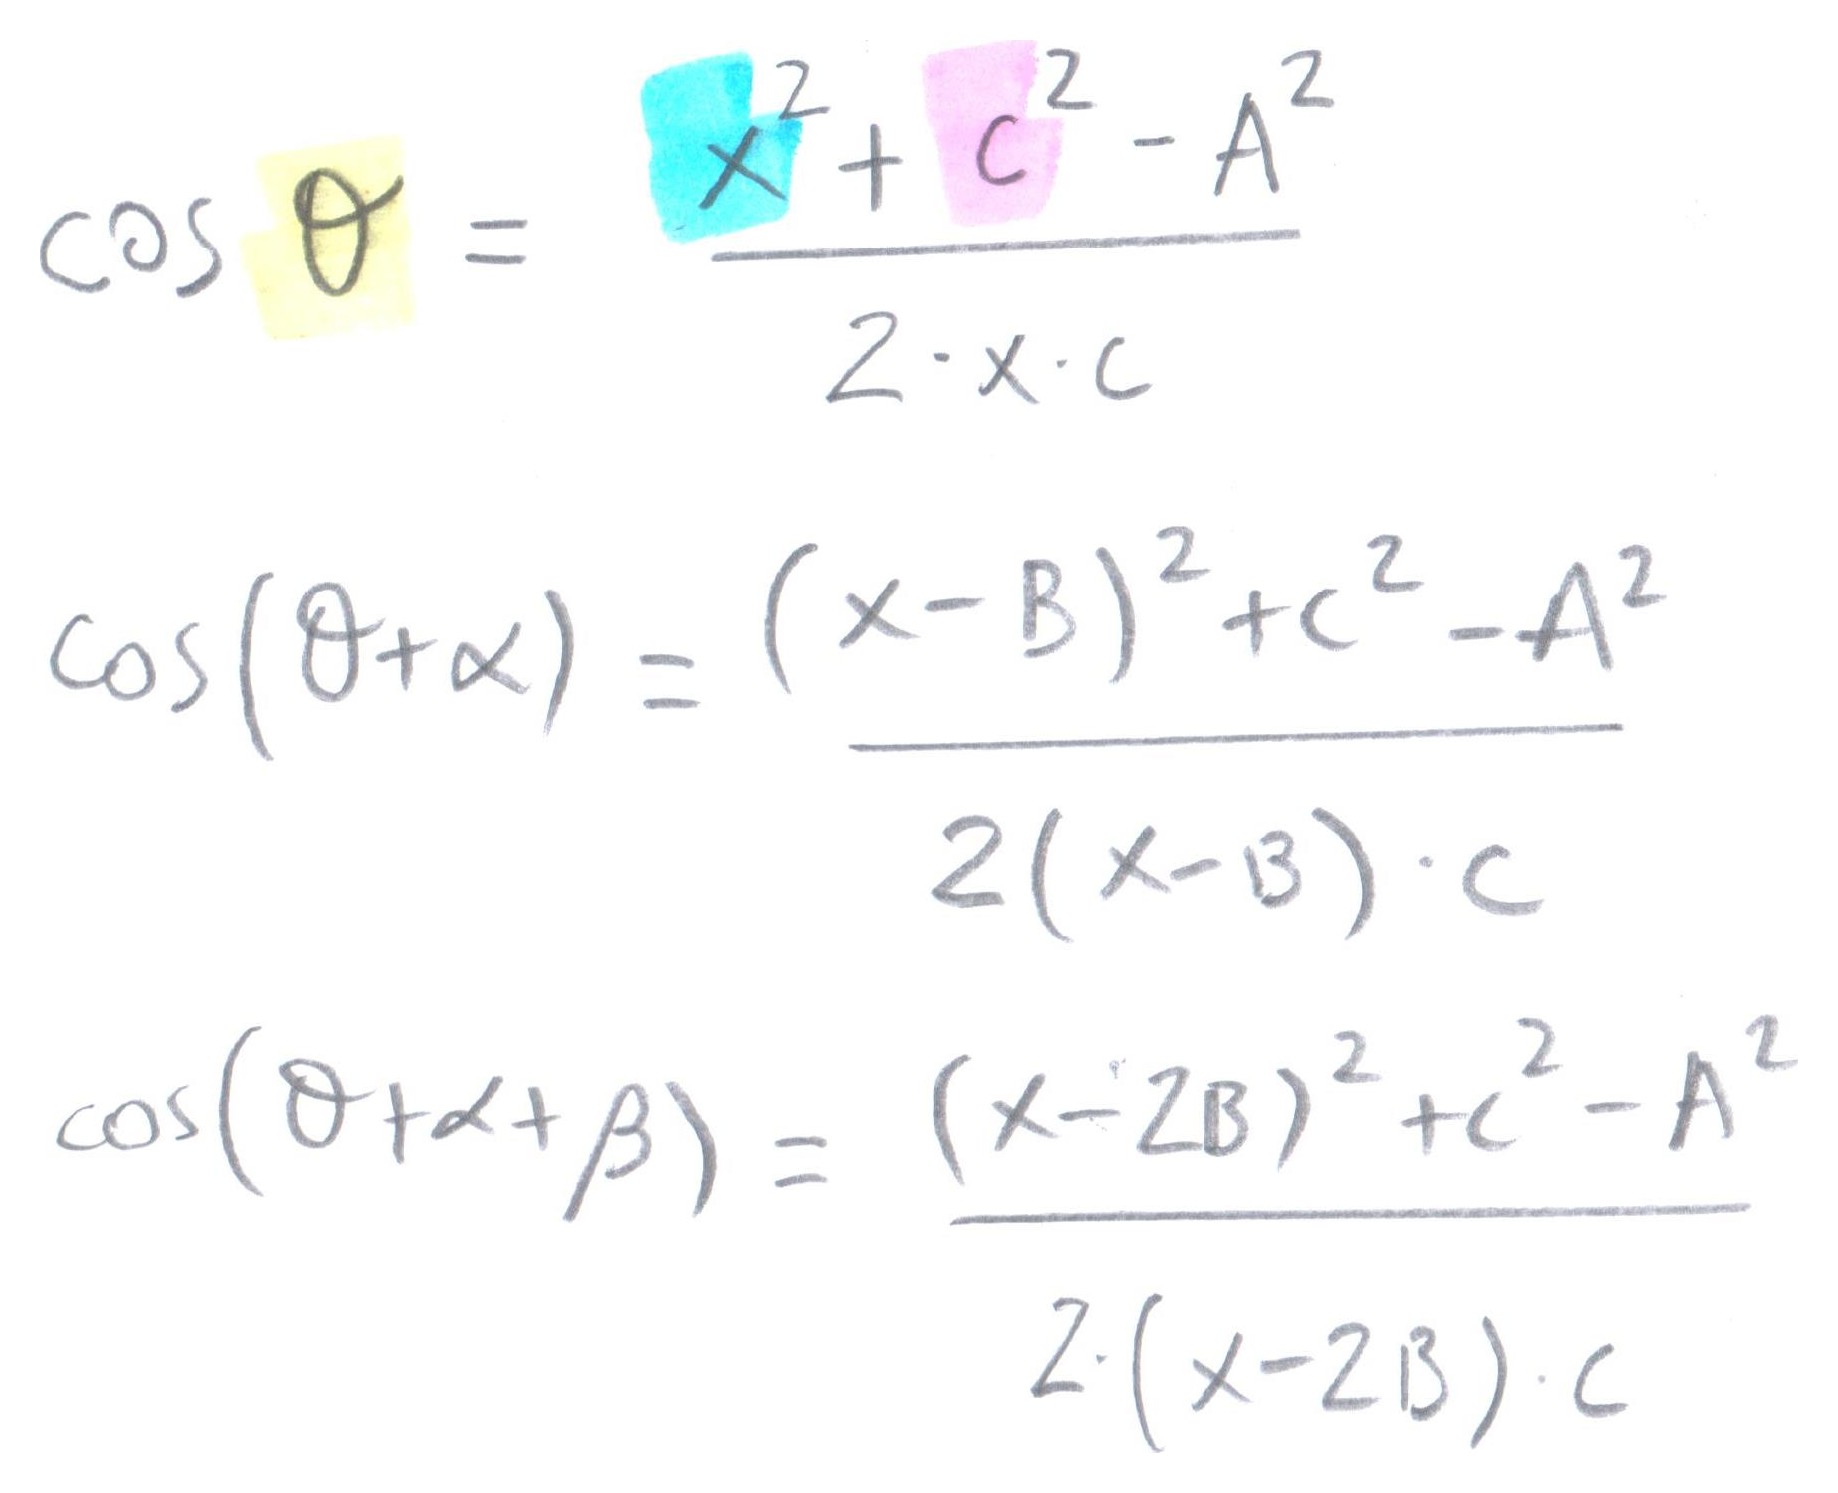 cos θ = (x² + c² - A²) / (2·x·c)
cos(θ+α) = ((x-B)² + c² - A²) / (2(x-B)·c)
cos(θ+α+β) = ((x-2B)² + c² - A²) / (2·(x-2B)·c)